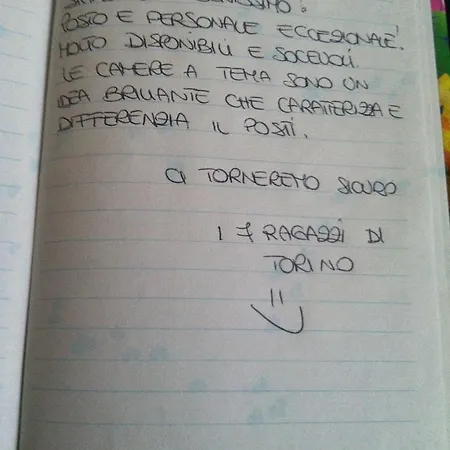 POSTO E PERSONALE ECCEZIONALE!
MOLTO DISPONIBILI E SOCEVOLI.
LE CAMERE A TEMA SONO UN
IDEA BRILLANTE CHE CARATTERIZZA E
DIFFERENZIA IL POSTI.
CI TORNEREMO SICURO
I 7 RAGAZZI DI
TORINO